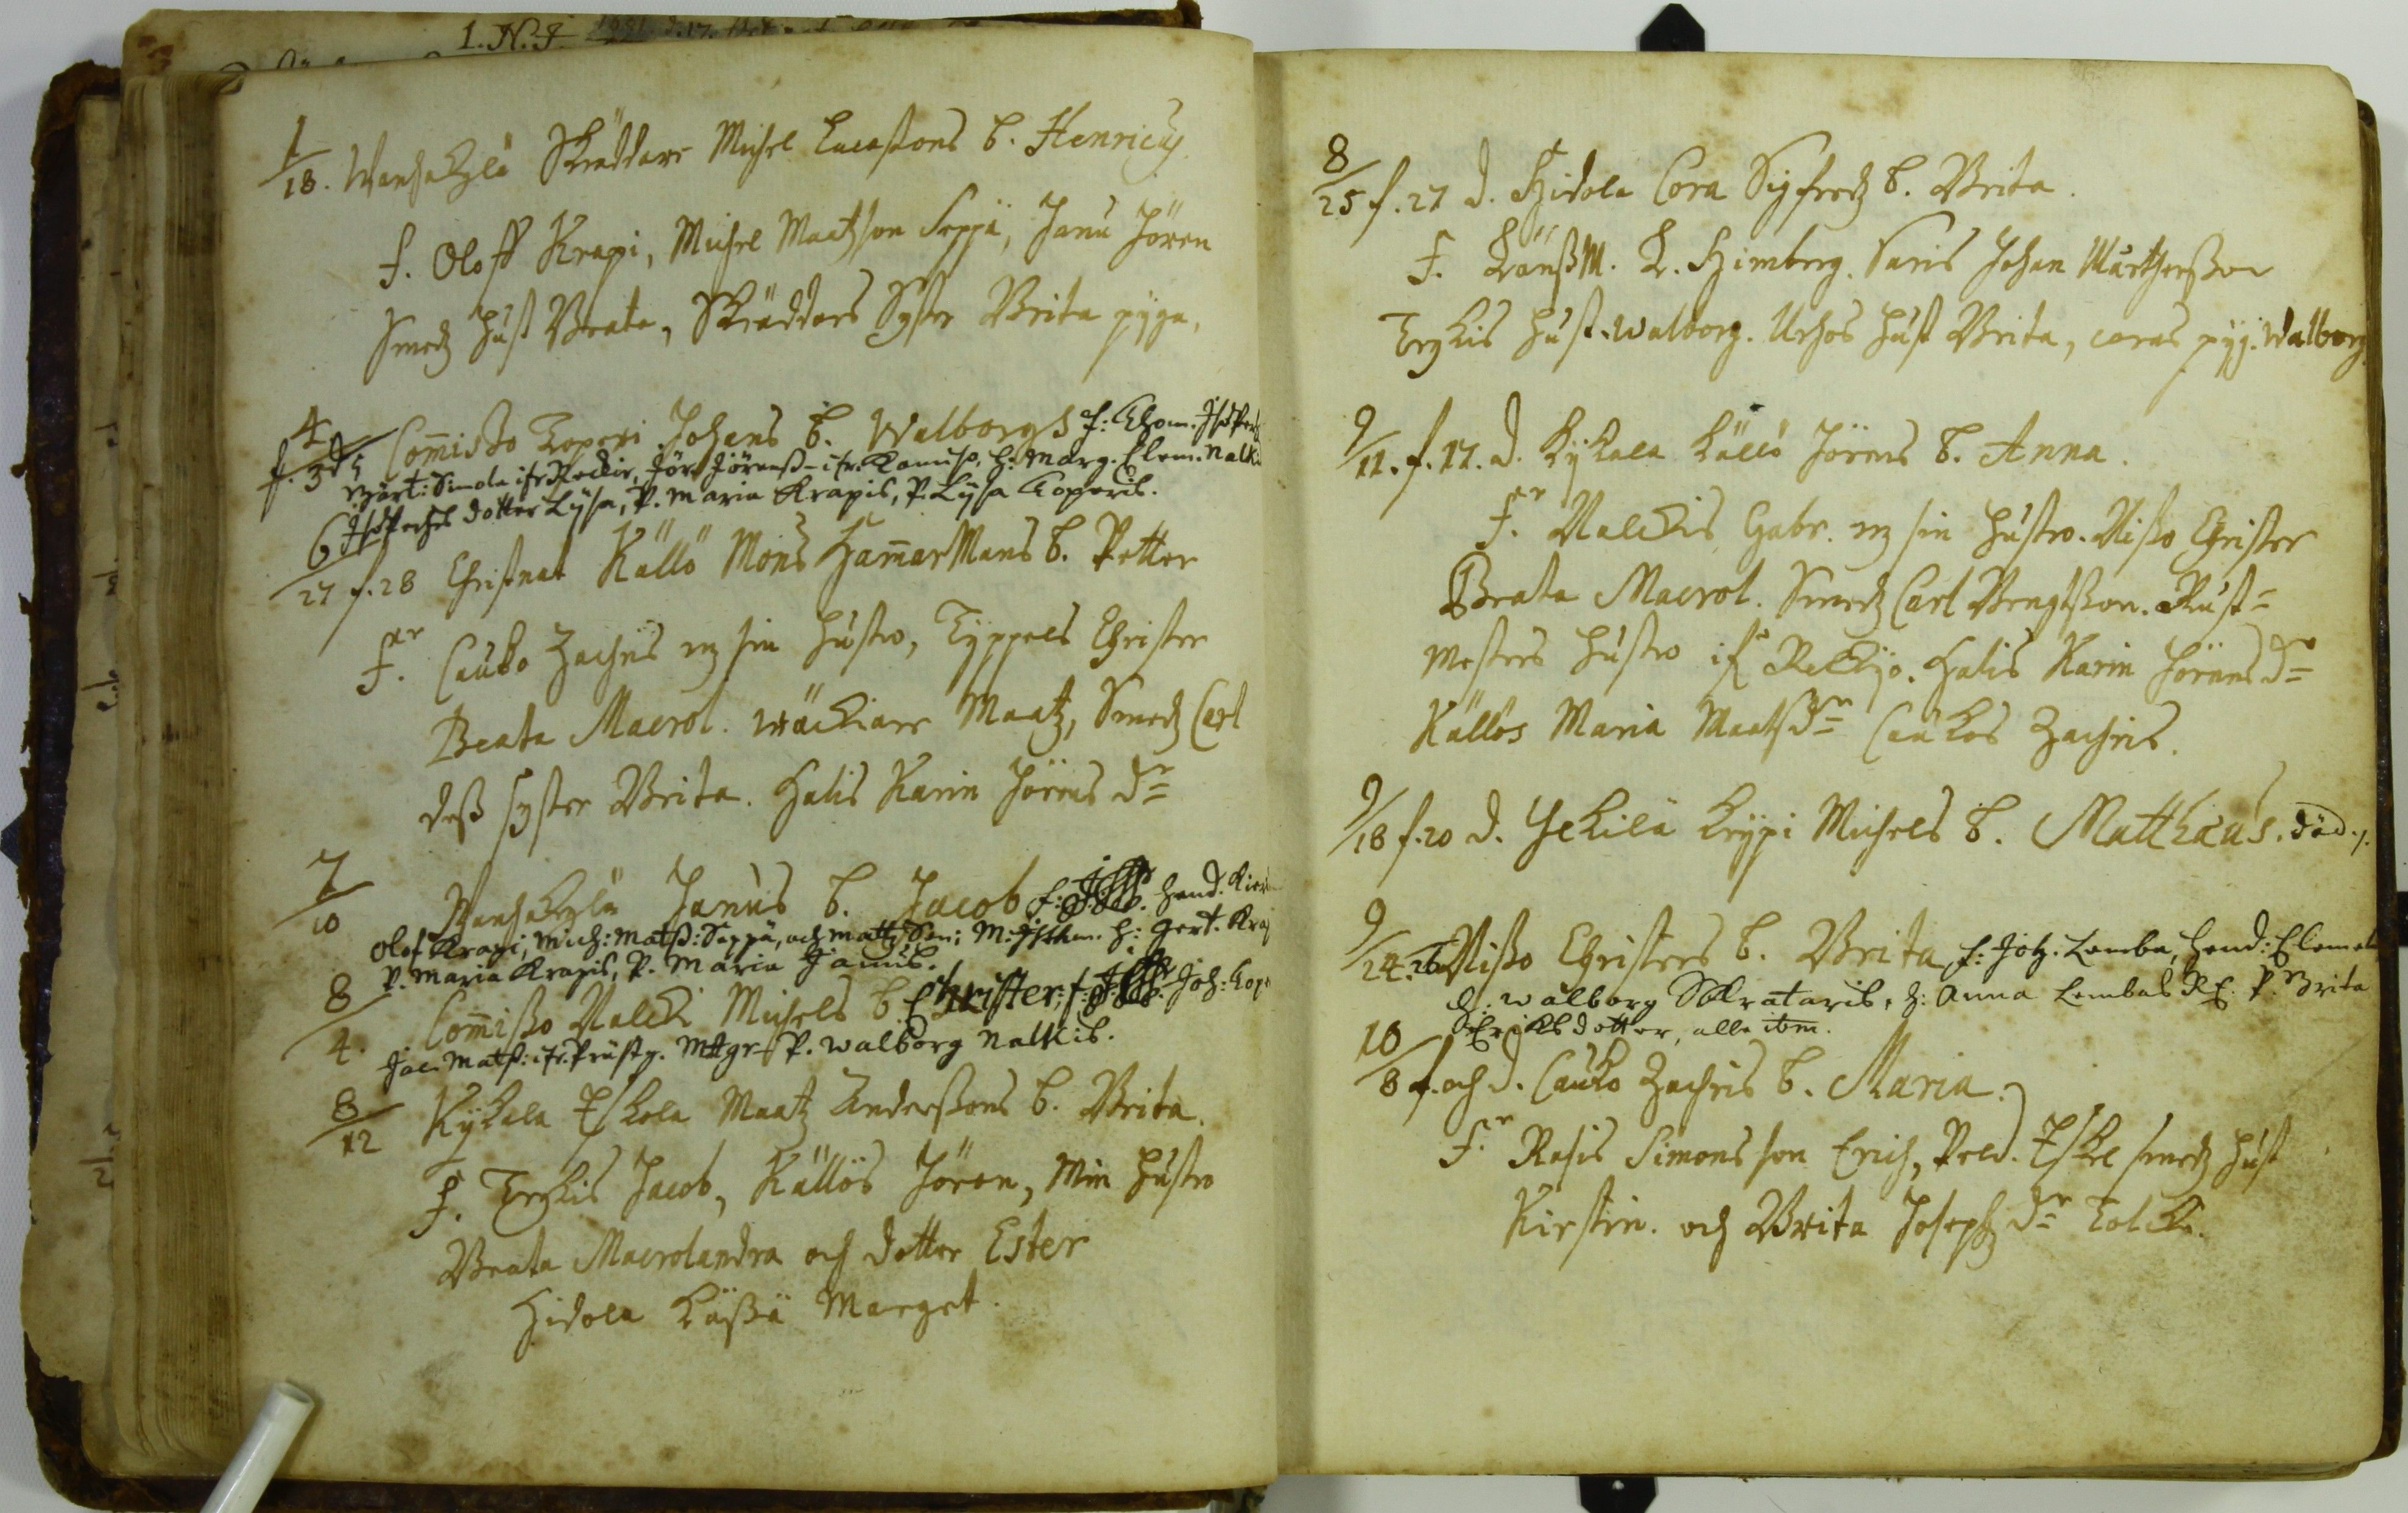 1. N. J.
1/18. Wanhakylä Skräddare Michel Lucassons b. Henricus
f. Oloff Krapi, Michel Maatzson Seppä, Janu Jören
Smedz hust Beata, Skräddars Syster Brita pyga,
4/f. 3 Commisso Toperi Johans b. Walborg f: Thom.
Märt: Simola ifr Reckio, Jör Jörenss- ifr. h. Marg. Clem. Nalki
dotter Lysa, P. Maria Krapis, P. Lysa Toperis.
6/27 f. 28 Christnat Källö Mons Hammarmans b. Petter
f.er Cauko Zachris m sin hustro, Typpels Christer
Beata Macrol. Wäckiare Maatz, Smedz Carl
dess syster Brita. Halis Karin Jörens dr
7/10 Wanhakylä Janus b. Jacob f: hend.
Olof Krapi, Mich: Matss: Seppä, och Matts Son; h: Gert. Krap
P. Maria Krapis, P. Maria Janus.
8/4. Commisso Nalcki Michels b. Christer, f: Joh: Top
Jac. Matss: ifr. P. Walborg Nalkis.
8/12 Kykala Eskola Maatz Anderssons b. Brita.
f. Terkis Jacob, Källös Jören, Min hustro
Beata Macrolandra och dotter Ester
Hidola Lässä Marget.
8/25 f. 27 d. Hidola Cora Sigfredz b. Brita.
F. LänssM. L. Himberg. Saris Johan Mårthersson
Terkis hust. Walborg. Urhos hust Brita, coras pyg. Walborg
9/11. f. 17. d. Kykala Källö Jörens b. Anna.
F.er Nalckis Gabr. m sin hustro. Nisso Christer
Beata Macrol. Smedz Carl Bengtsson. Rust=
mesters hustro if Reckijo. Halis Karin Jörens dr
Källös Maria Maats dr Caukos Zachris.
9/18 f. 20 d. Jckilä Keypi Michels b. Matthæus. död.
9/24. 26 Nisso Christers b. Brita f: Joh. Lemba, hend: Clemet
h: Walborg Skrataris, h: Anna Lembas P. Brita
Ericksdotter, alle ibm.
10/8 f. och d. Cauko Zachris b. Maria.
F.er Rasis Simons son Erich, Peld. Eskel smedz hust
Kirstin. och Brita Josephz dr Tolcki.